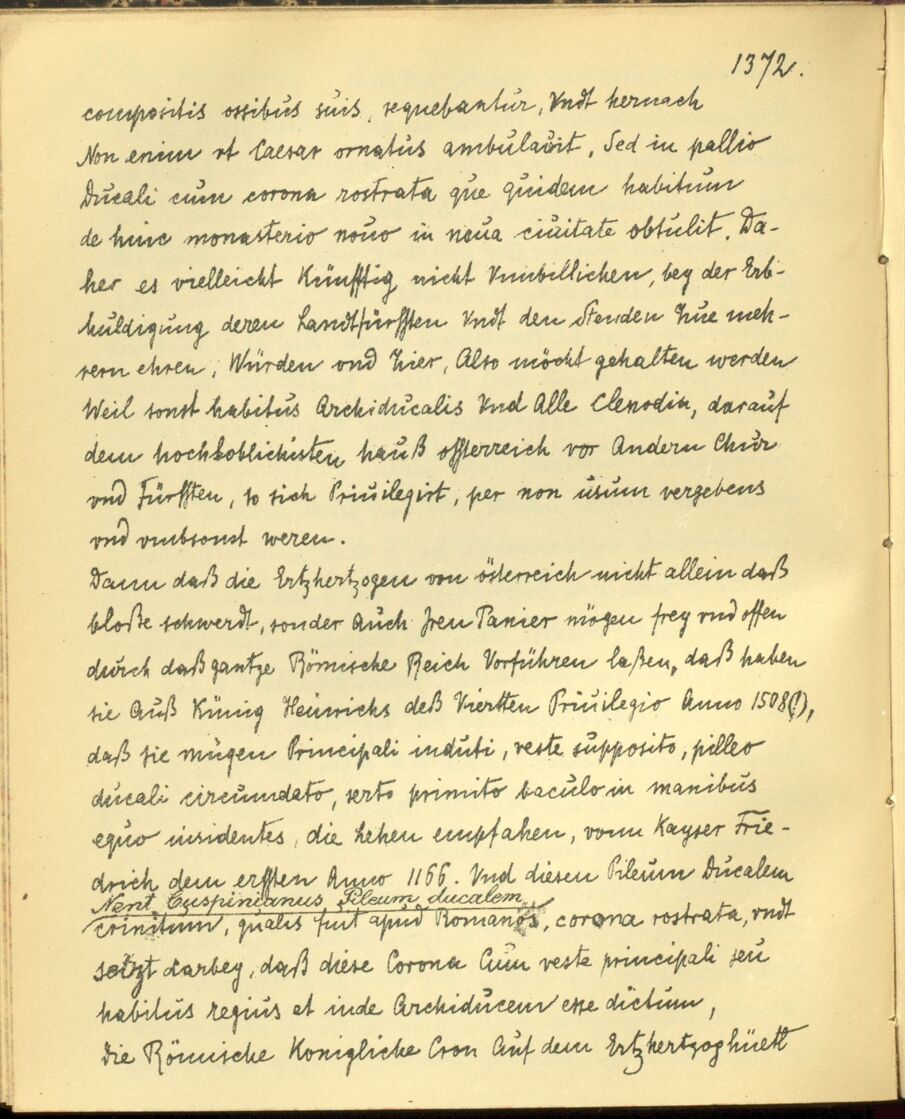 1372.
compositis ossibus suis, sequebantur, Vndt hernach
Non enim vt Caesar ornatus ambulavit, Sed in pallio
Ducali cum corona rostrata que quidem habitum
de hinc monasterio nouo in neua ciuitate obtulit. Da-
her es vielleicht Künfftig nicht Vnbillichen, bey der Erb-
huldigung deren Landtfürsten Vndt den Stenden Zue meh-
rern ehren, Würden vnd Zier, Also möcht gehalten werden
Weil sonst habitus Archiducalis Vnd Alle Clenodia, darauf
dem hochloblichisten hauß össterreich vor Andern Chur
vnd Fürsten, so sich Priuilegirt, per non usum vergebens
vnd vmbsonst weren.
Dann daß die Ertzhertzogen von österreich nicht allein daß
bloße schwerdt, sonder Auch Jren Panier mögen frey vnd offen
durch daß gantze Römische Reich Vorführen laßen, daß haben
sie Auß Künig Heinrichs deß Viertten Priuilegio Anno 1508(!),
daß sie mügen Principali induti, veste supposito, pilleo
ducali circumdato, serto primito baculo in manibus
equo insidentes, die lehen empfahen, vonn Kayser Frie-
drich dem ersten Anno 1166. Vnd diesen Pileum Ducalem
Nent Cuspinianus Pileum ducalem
crinitum, qualis fuit apud Romanos, corona rostrata, vndt
setzt darbey, daß diese Corona Cum veste principali seu
habitus regius et inde Archiducem esse dictum,
Die Römische Konigliche Cron Auf dem Ertzhertzoghüetl